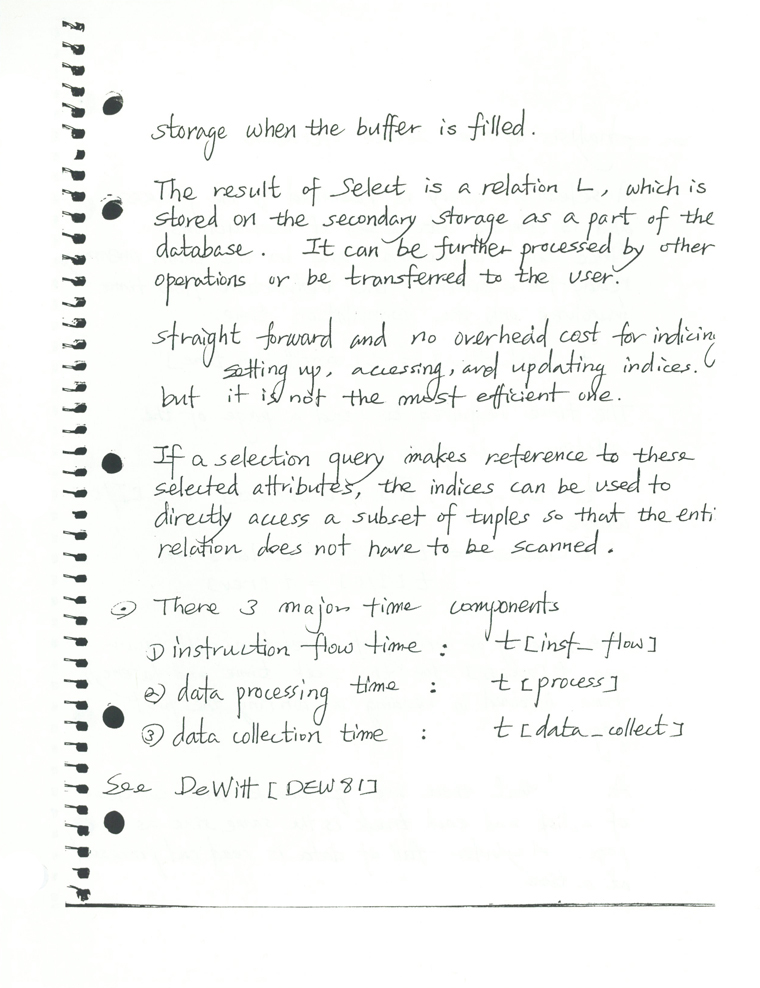 storage when the buffer is filled.
The result of Select is a relation L, which is
stored on the secondary storage as a part of the
database. It can be further processed by other
operations or be transferred to the user.
straight forward and no overhead cost for indicing
setting up, accessing, and updating indices.
but it is not the most efficient one.
If a selection query makes reference to these
selected attributes, the indices can be used to
directly access a subset of tuples so that the enti
relation does not have to be scanned.
⊙ There 3 major time components
① instruction flow time : t[inst_flow]
② data processing time : t[process]
③ data collection time : t[data_collect]
See DeWitt [DEW81]